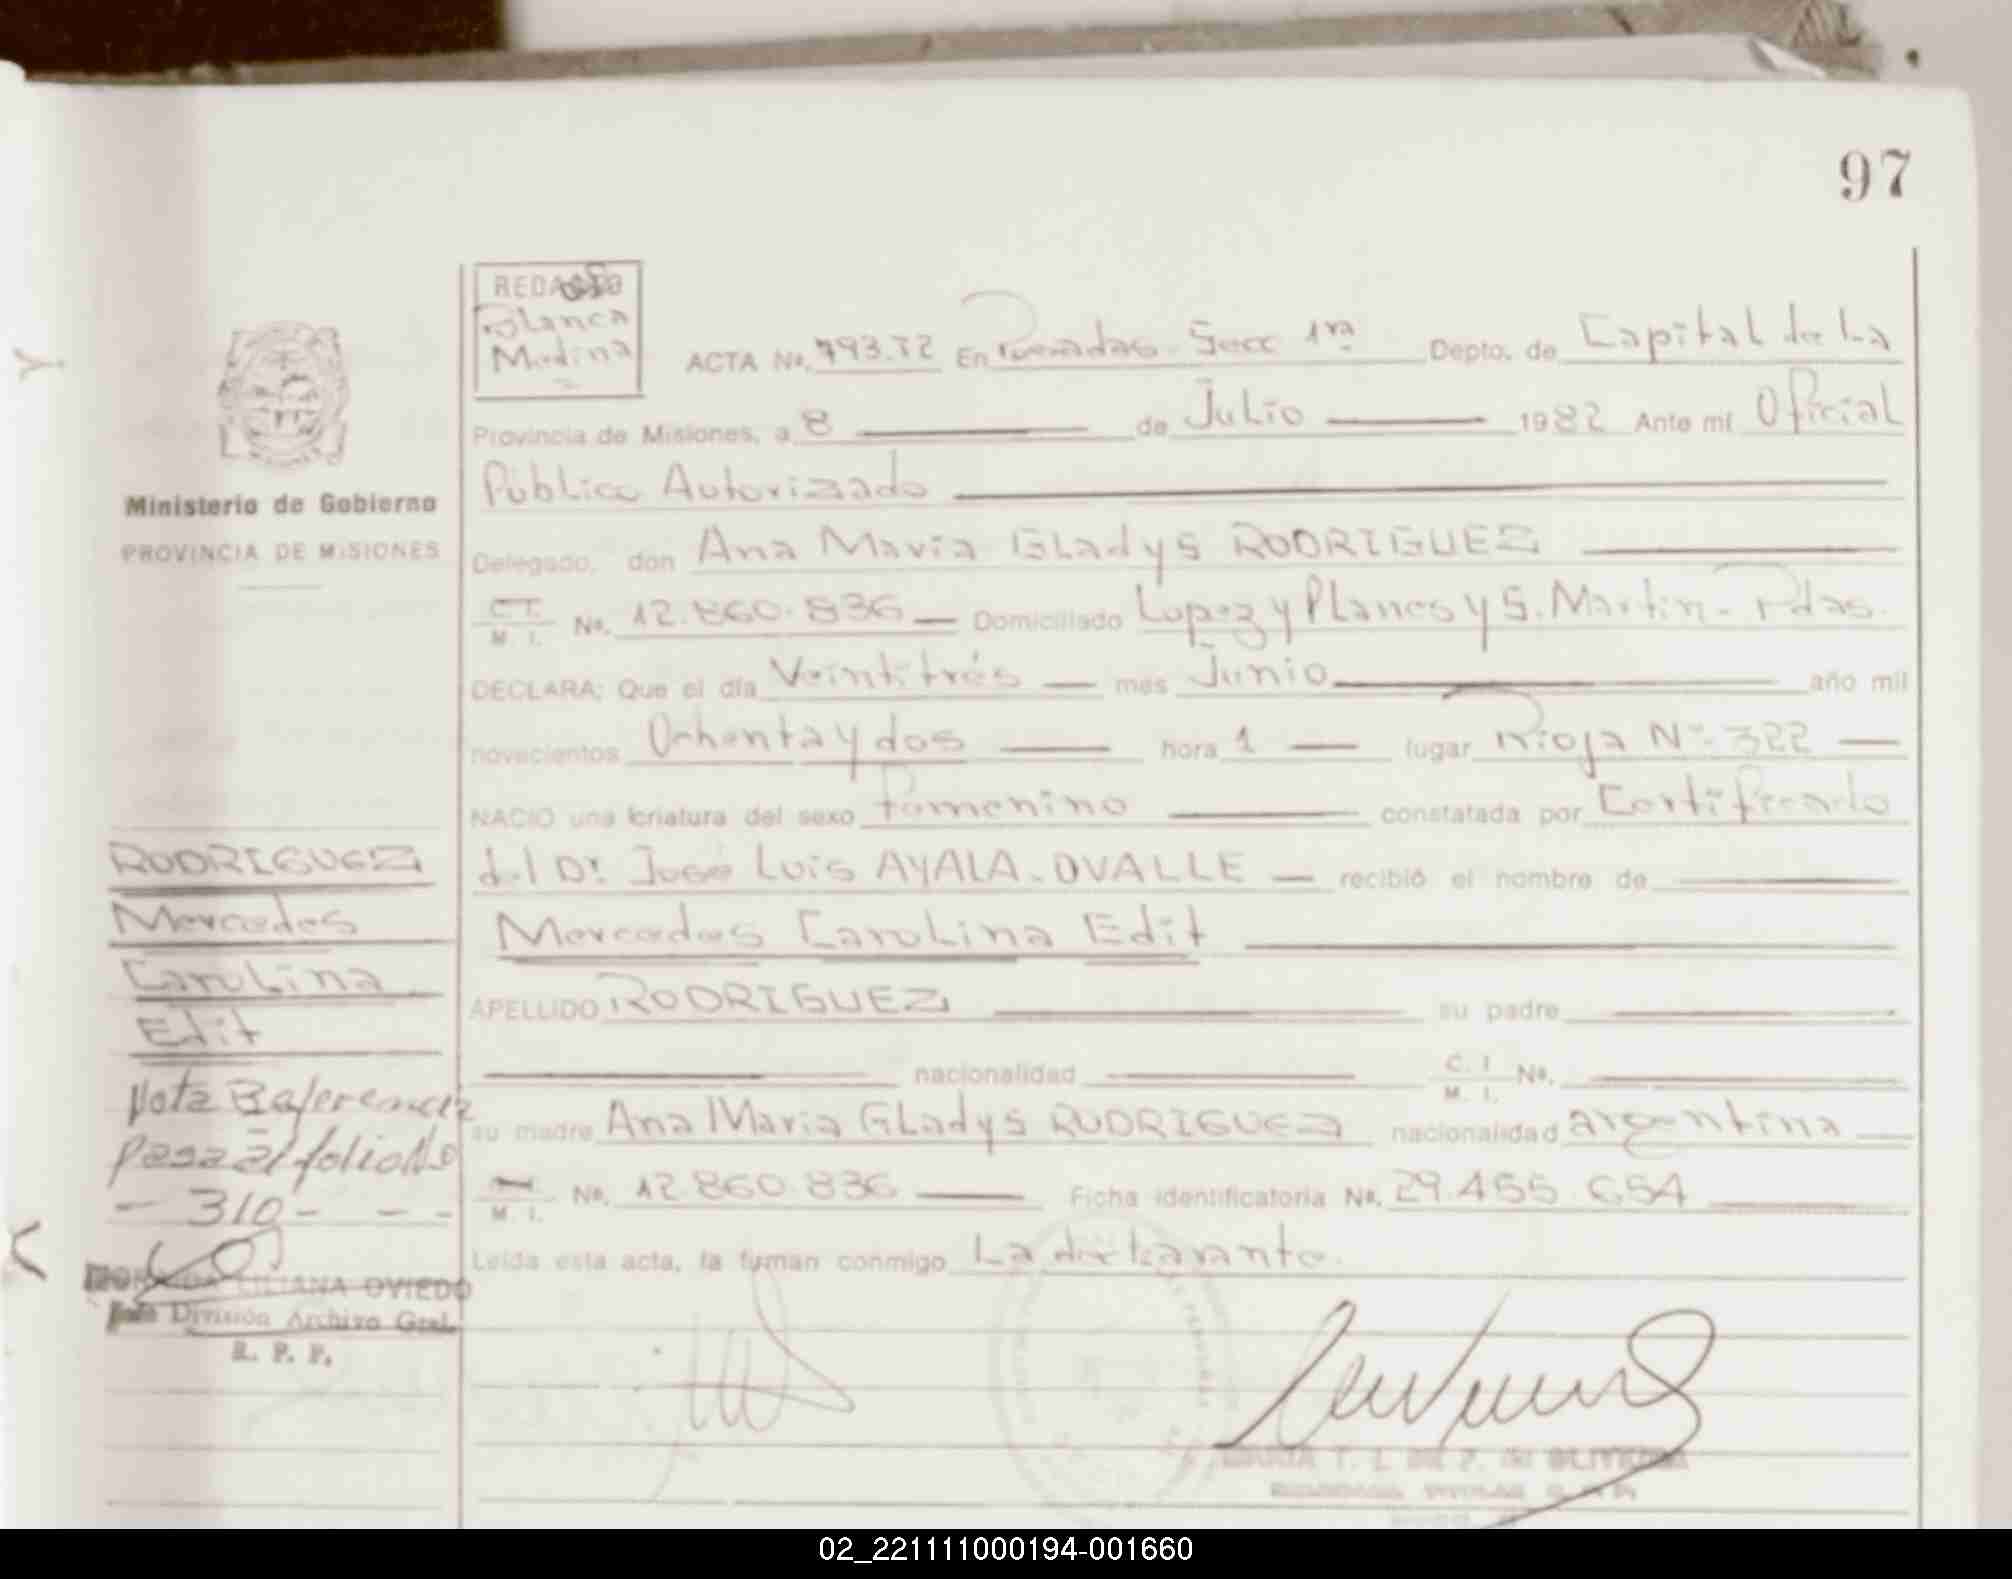 97
REDACTO
Blanca
Medina
ACTA No. 793.T2 En Posadas Secc 1ra Depto. de Capital de La
Provincia de Misiones, a 8 de Julio 1982 Ante mí Oficial
Público Autorizado
Delegado, don Ana María Gladys RODRIGUEZ
C.I. M. I. No. 12.860.836 Domiciliado Lopez y Planes y S. Martin - Pdas.
DECLARA: Que el día Veintitrés mes Junio año mil
novecientos Ochenta y dos hora 1 lugar Rioja Nº 322
NACIO una criatura del sexo femenino constatada por Certificado
del Dr. José Luis AYALA-OVALLE recibió el nombre de
Mercedes Carolina Edit
APELLIDO RODRIGUEZ su padre
nacionalidad C. I M. I. No.
su madre Ana Maria Gladys RODRIGUEZ nacionalidad argentina
M. I. No. 12.860.836 Ficha identificatoria No. 29.455.654
Leída esta acta, la firman conmigo La declarante.
Ministerio de Gobierno
PROVINCIA DE MISIONES
RODRIGUEZ
Mercedes
Carolina
Edit
Nota Referencia
pasa al folio Nº
- 310 - - -
LILIANA OVIEDO
División Archivo Gral.
R. P. P.
02_221111000194-001660